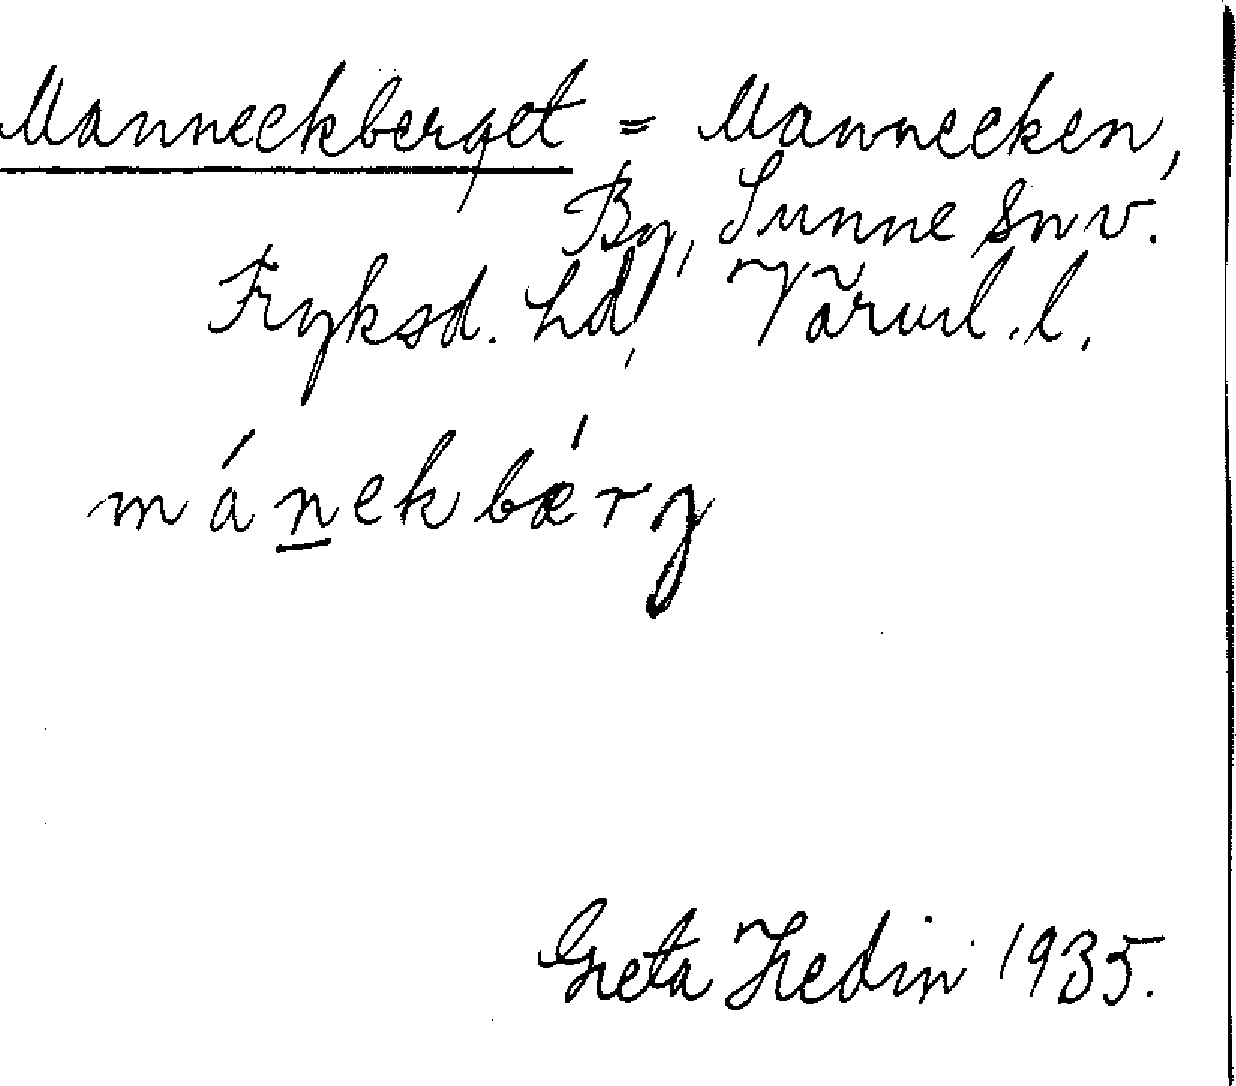 Manneckberget = Mannecken,
By, Sunne sn v.
Fryksd. hd, Värml. l.
mánekbǽrg
Greta Hedin 1935.